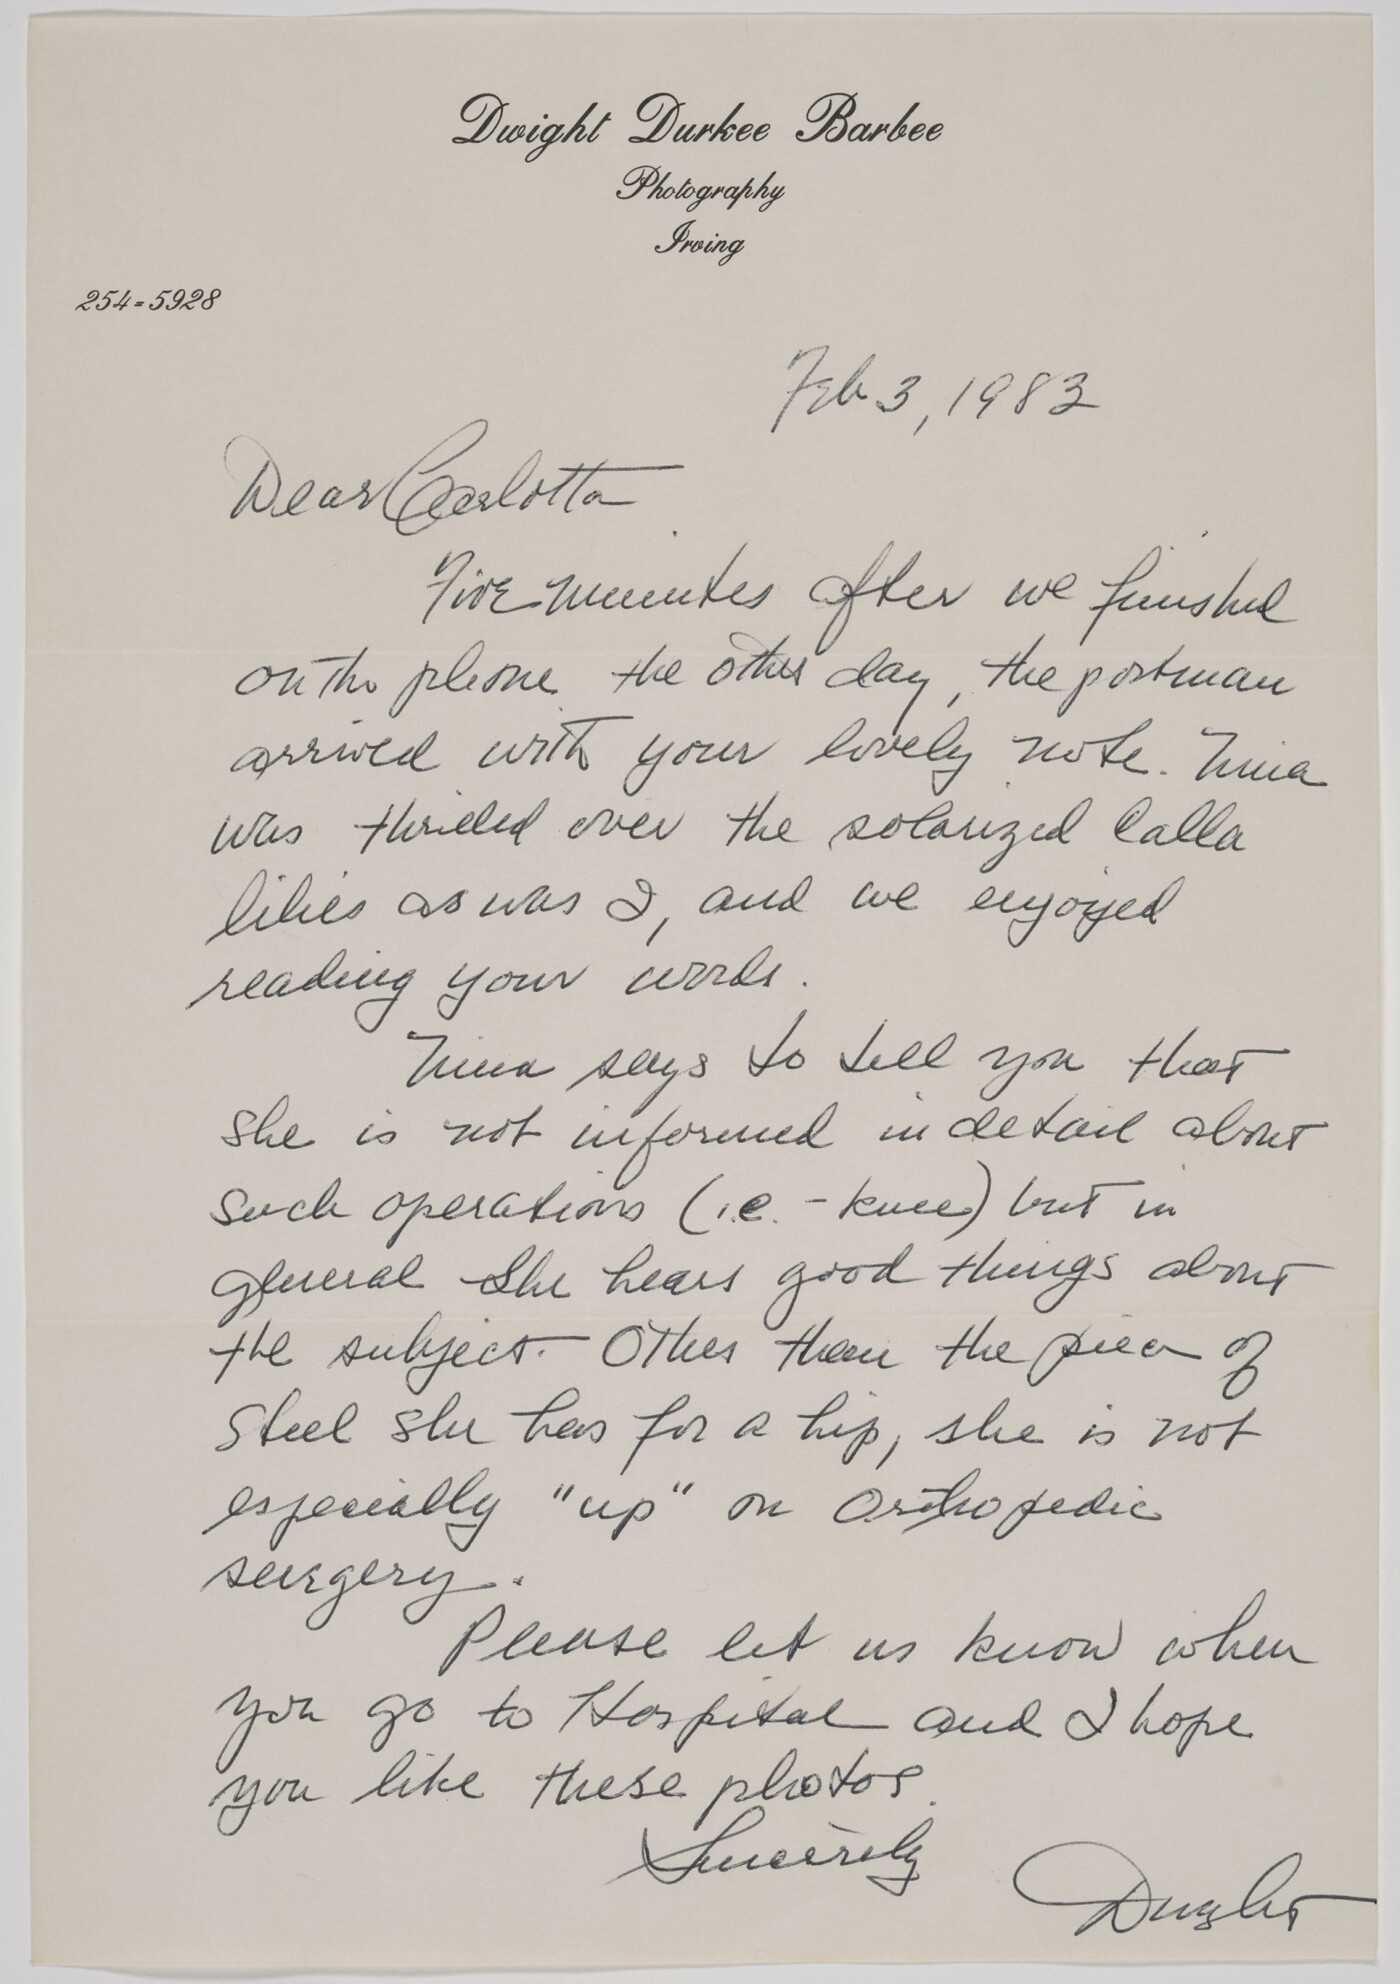 Dwight Durkee Barbee
Photography
Irving
254-5928
Feb 3, 1983
Dear Carlotta
Five minutes after we finished
on the phone the other day, the postman
arrived with your lovely note. Nina
was thrilled over the solarized Calla
lilies as was I, and we enjoyed
reading your words.
Nina says to tell you that
she is not informed in detail about
such operations (i.e. - knee) but in
general she hears good things about
the subject. Other than the piece of
steel she has for a hip, she is not
especially "up" on Orthopedic
surgery.
Please let us know when
you go to Hospital and I hope
you like these photos.
Sincerely
Dwight